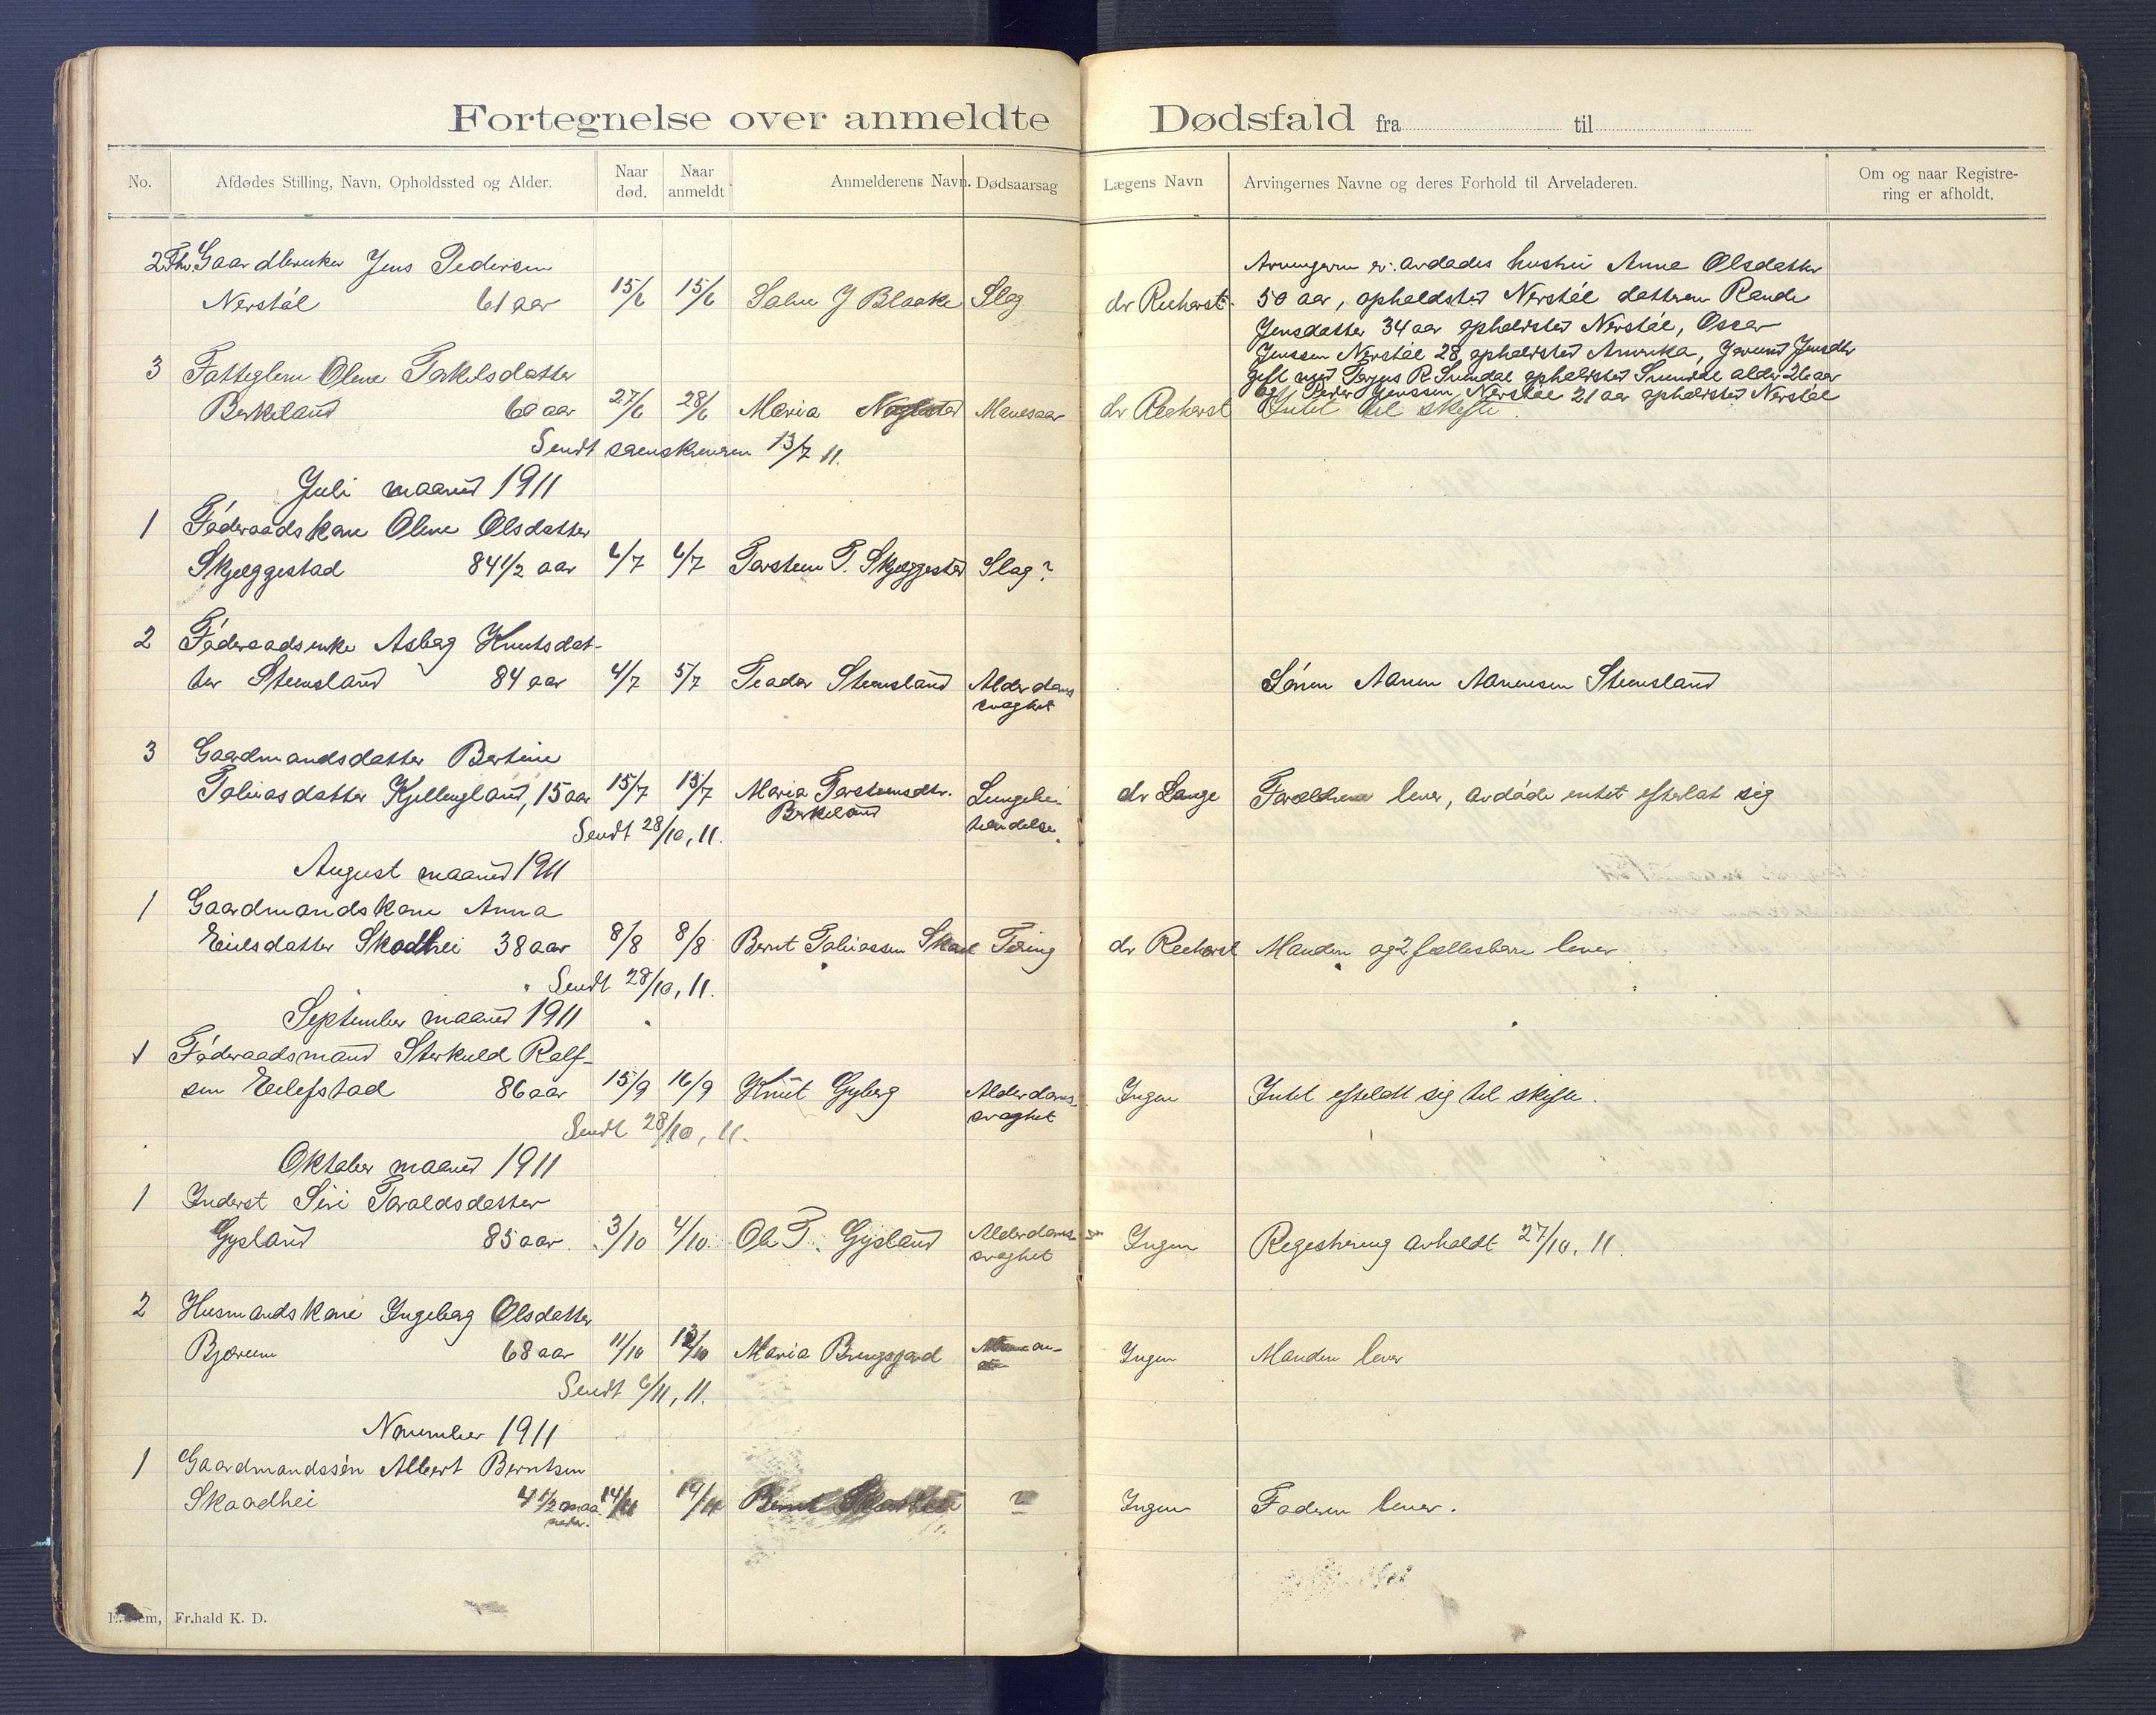 Fortegnelse over anmeldte Dødsfald fra til
No. Afdødes Stilling, Navn, Opholdssted og Alder. Naar død. Naar anmeldt Anmelderens Navn. Dødsaarsag Lægens Navn Arvingernes Navne og deres Forhold til Arveladeren. Om og naar Registrering er afholdt.
2 Gaardbruker Jens Pedersen
Nerstøl 61 aar 15/6 15/6 Salve J Blaake Slag dr Reehorst
Arvingerne er: avdødes hustru Anne Olsdatter
50 aar, opholdsted Nerstøl datteren Rande
Jensdatter 34 aar opholdsted Nerstøl, Osser
Jenssen Nerstøl 28 opholdsted Amerika, Jensdtr
gift med Tarjus R Sunndal opholdsted Sunndal alder 26 aar
og Peder Jenssen Nerstøl 21 aar opholdsted Nerstøl
3 Fatteglem Olene Torkelsdatter
Berkeland 60 aar 27/6 28/6 Maria dr Reehorst Intet til skifte
Sendt sorenskriveren 13/7 11.
Juli maaned 1911
1 Føderaadskone Olene Olsdatter
Skjeggestad 84 1/2 aar 6/7 6/7 Torsten T. Skjeggestad Slag?
2 Føderaadsenke Asborg Knutsdat-
ter Steensland 84 aar 4/7 5/7 Teodor Steensland Alderdoms Søren Aanen Aanensen Steensland
svaghet
3 Gaardmandsdatter Bertine
Tobiasdatter Kjellengland, 15 aar 15/7 15/7 Maria Torstensdtr. Lungebe- dr Lange Forældrene lever, avdøde intet efterlot sig
Berkeland tendelse.
Sendt 28/10, 11.
August maaned 1911
1 Gaardmandskone Anna
Eielsdatter Skodhei 38 aar 8/8 8/8 Bernt Tobiassen Skad Tæring dr Reehorst Manden og 2 fællesbarn lever
Sendt 28/10, 11.
September maaned 1911
1 Føderaadsmand Sterkuld Rolf-
sen Eilefstad 86 aar 15/9 16/9 Knut Gyberg Alderdoms- Ingen Intet efterlatt sig til skifte.
svaghet
Sendt 28/10, 11.
Oktober maaned 1911
1 Inderst Siri Taraldsdatter
Gysland 85 aar. 3/10 4/10 Ole T. Gysland Alderdoms- Ingen Regestrering avholdt 27/10, 11.
svaghet
2 Husmandskone Ingeborg Olsdatter
Bjoreun 68 aar 11/10 12/10 Maria Bringsjord Ingen Manden lever
Sendt 6/11, 11.
November 1911
1 Gaardmandssøn Albert Berntsen
Skaadhei 4 1/2 maa 14/11 19/11 Bernt Skaadhei ? Ingen Faderen lever.
neder.
Fr.hald K. D.